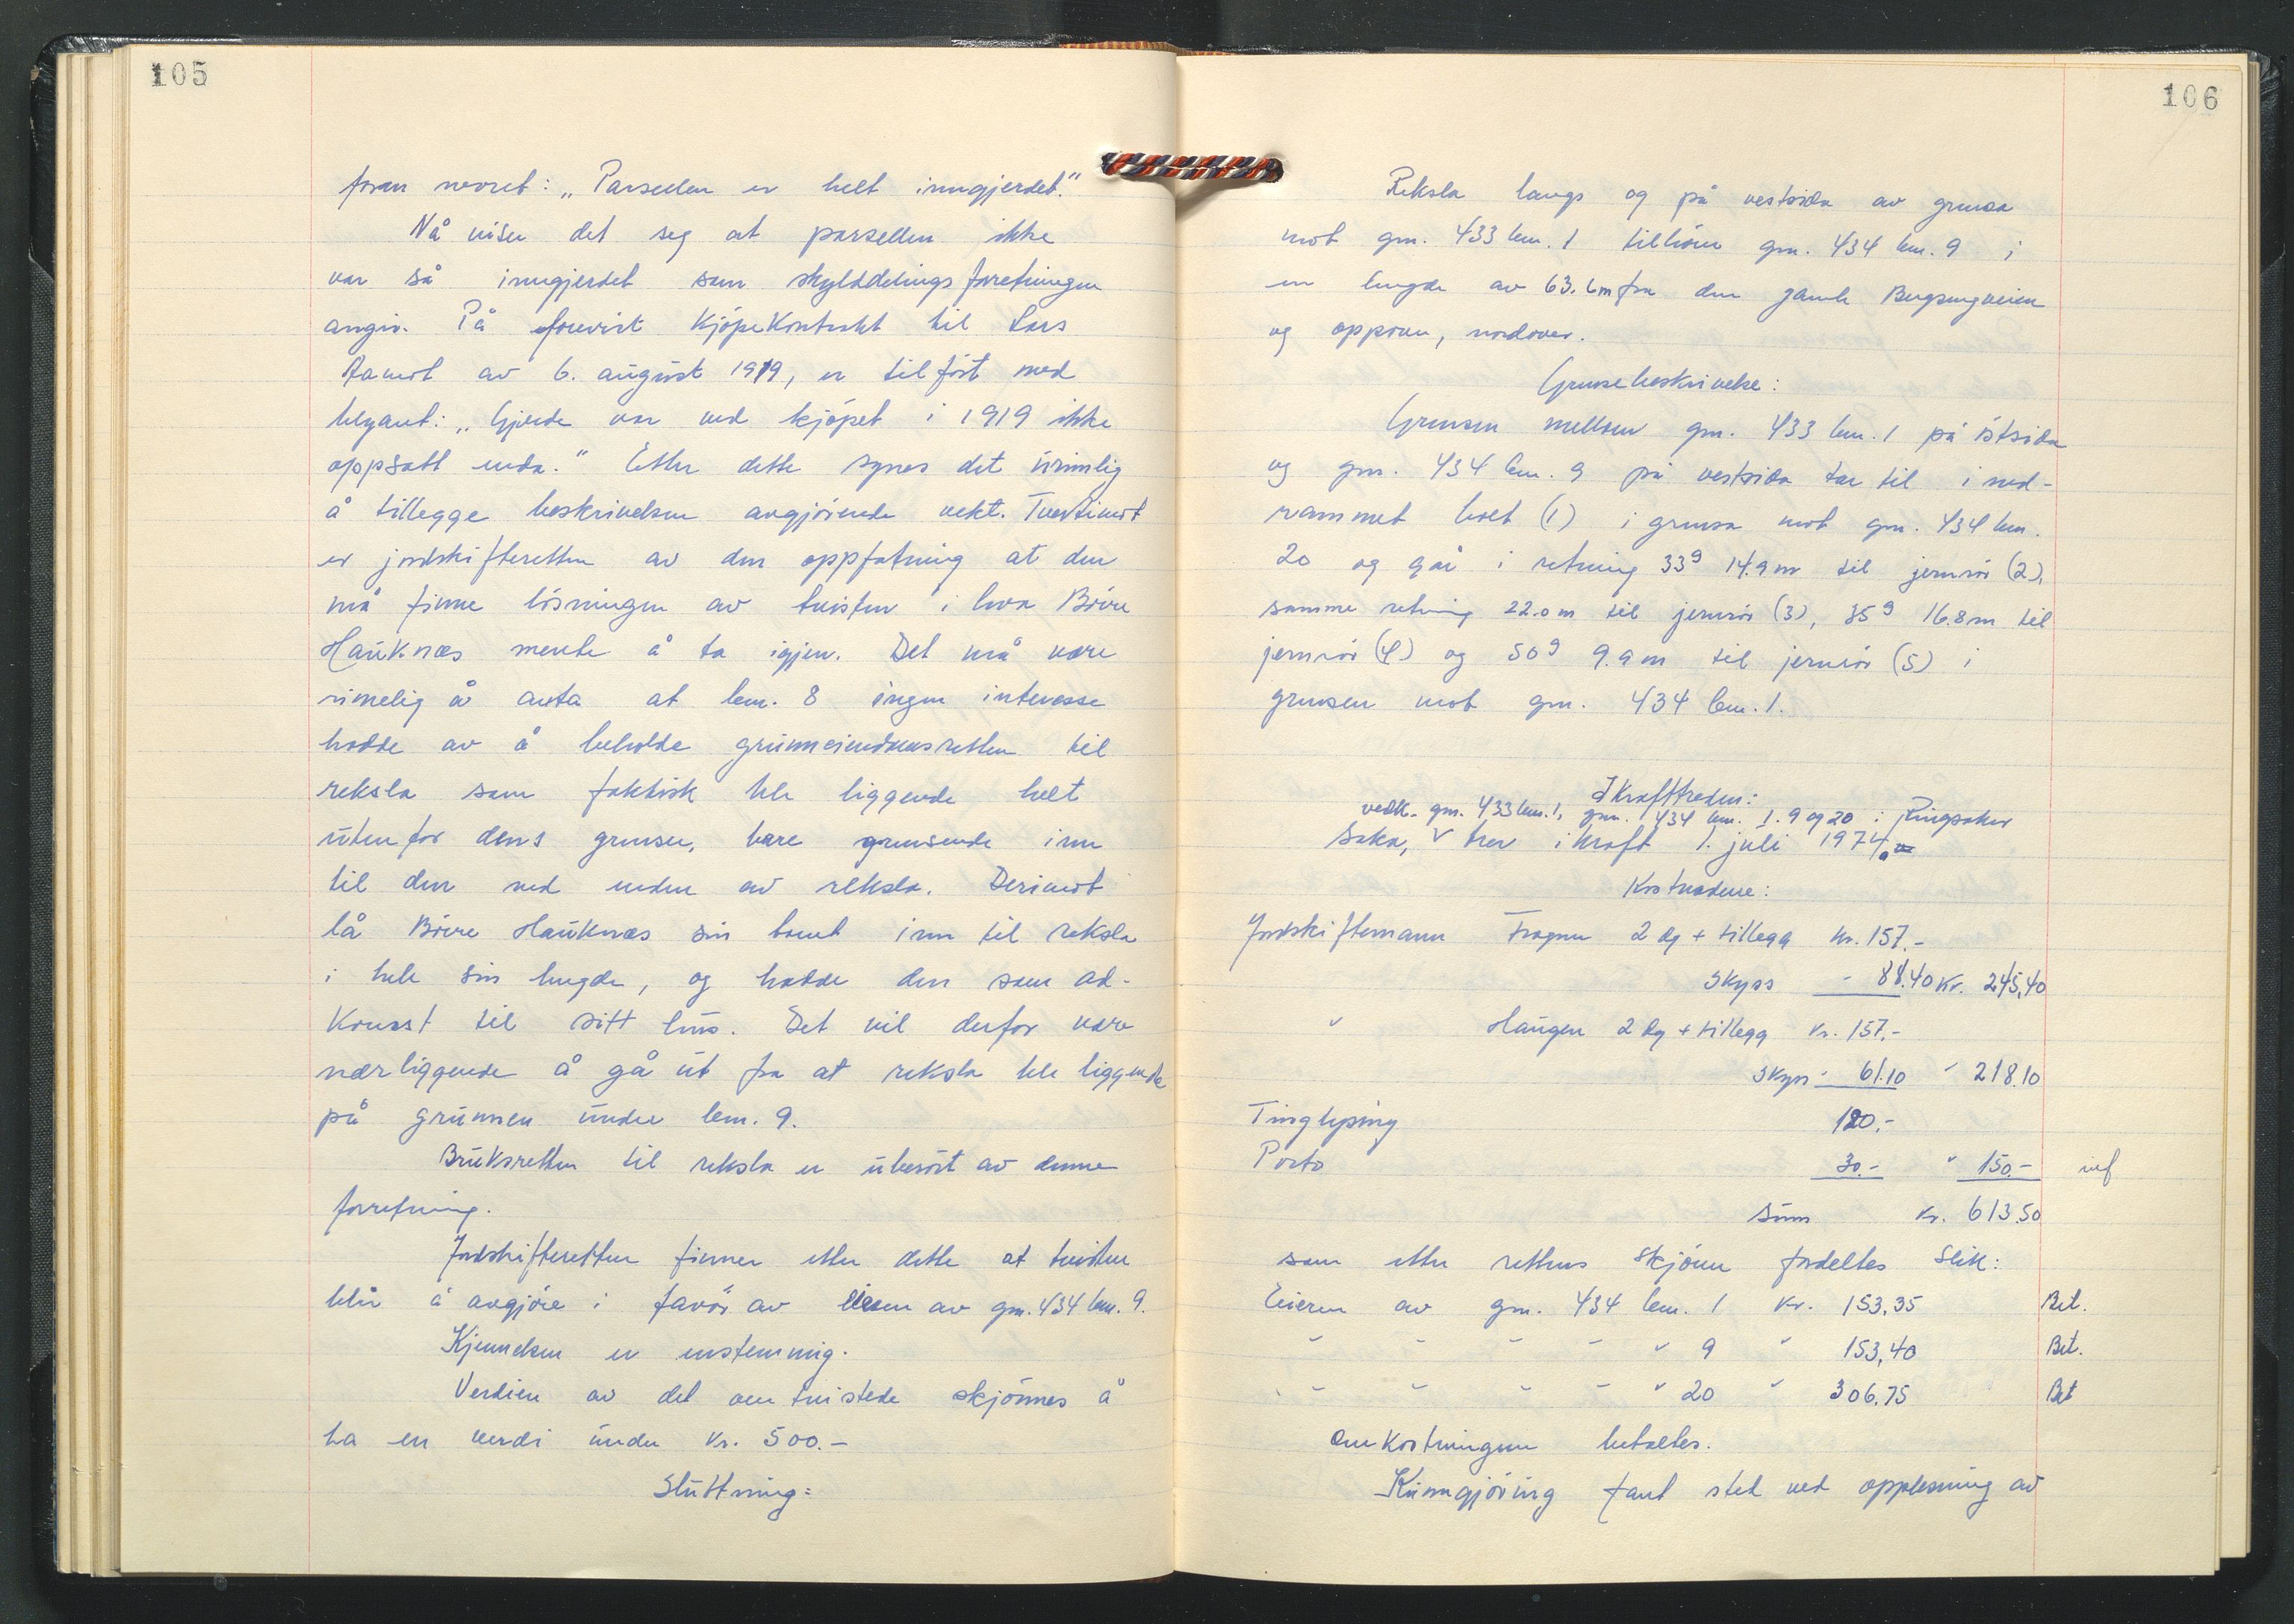 105
foran nevnt: „Parsellen er helt inngjerdet."
Nå viser det seg at parsellen ikke
var så inngjerdet som skylddelingsforretningen
angir. På forevist Kjöpekontrakt til Lars
Aamot av 6. august 1919, er tilföt med
blyant: „Gjerde var ved kjöpet i 1919 ikke
oppsatt enda." Etter dette synes det urimlig
å tillegge beskrivelsen avgjörende vekt. Tvertimot
er jordskifteretten av den oppfatning at den
må finne lösningen av tvisten i hva Börre
Hauknes mente å ta igjen. Det må være
rimelig å anta at bnr. 8 ingen interesse
hadde av å beholde grunneiendomsretten til
reksla som faktisk ble liggende helt
utenfor dens grenser, bare grensende inn
til den ved enden av reksla. Derimot
lå Börre Hauknes sin tomt inn til reksla
i hele sin lengde, og hadde den som ad-
komst til sitt hus. Det vil derfor være
nærliggende å gå ut fra at reksla ble liggende
på grunnen under bnr. 9.
Bruksretten til reksla er uberört av denne
forretning.
Jordskifteretten finner etter dette at tvisten
blir å avgjöre i favör av eieren av gnr. 434 bnr. 9.
Kjennelsen er enstemmig.
Verdien av det omtvistede skjönnes å
ha en verdi under kr. 500.-
Sluttning:
106
Reksla langs og på vestsida av grensa
mot gnr. 433 bnr. 1 tilhörer gnr. 434 bnr. 9 i
en lengde av 63.6m fra den gamle veien
og oppover, nordover.
Grensebeskrivelse:
Grensen mellom gnr. 433 bnr. 1 på östsida
og gnr. 434 bnr. 9 på vestsida tar til i ned-
rammet bolt (1) i grensa mot gnr. 434 bnr.
20 og går i retning 33g 14.9m til jernrör (2),
samme retning 22.0m til jernrör (3), 35g 16.8m til
jernrör (4) og 50g 9.9m til jernrör (5) i
grensen mot gnr. 434 bnr. 1.
Ikrafttreden:
vedk. gnr. 433 bnr. 1, gnr. 434 bnr. 1. 9 og 20 i Ringsaker
Saka, v trer i kraft 1. juli 1974.
Kostnadene:
Jordskiftemann Frogner 2 dg + tillegg kr. 157.-
Skyss - 88.40 Kr. 245,40
" Haugen 2 dg + tillegg kr. 157.-
Skyss - 61.10 " 218.10
Tinglysing 120.-
Porto 30.- " 150.-
Sum kr. 613.50
som etter rettens skjönn fordeltes slik:
Eieren av gnr. 434 bnr. 1 kr. 153,35 Bet.
" " " " " 9 " 153,40 Bet.
" " " " " 20 " 306.75 Bet
Omkostningene betaltes.
Kunngjöring fant sted ved opplesning av